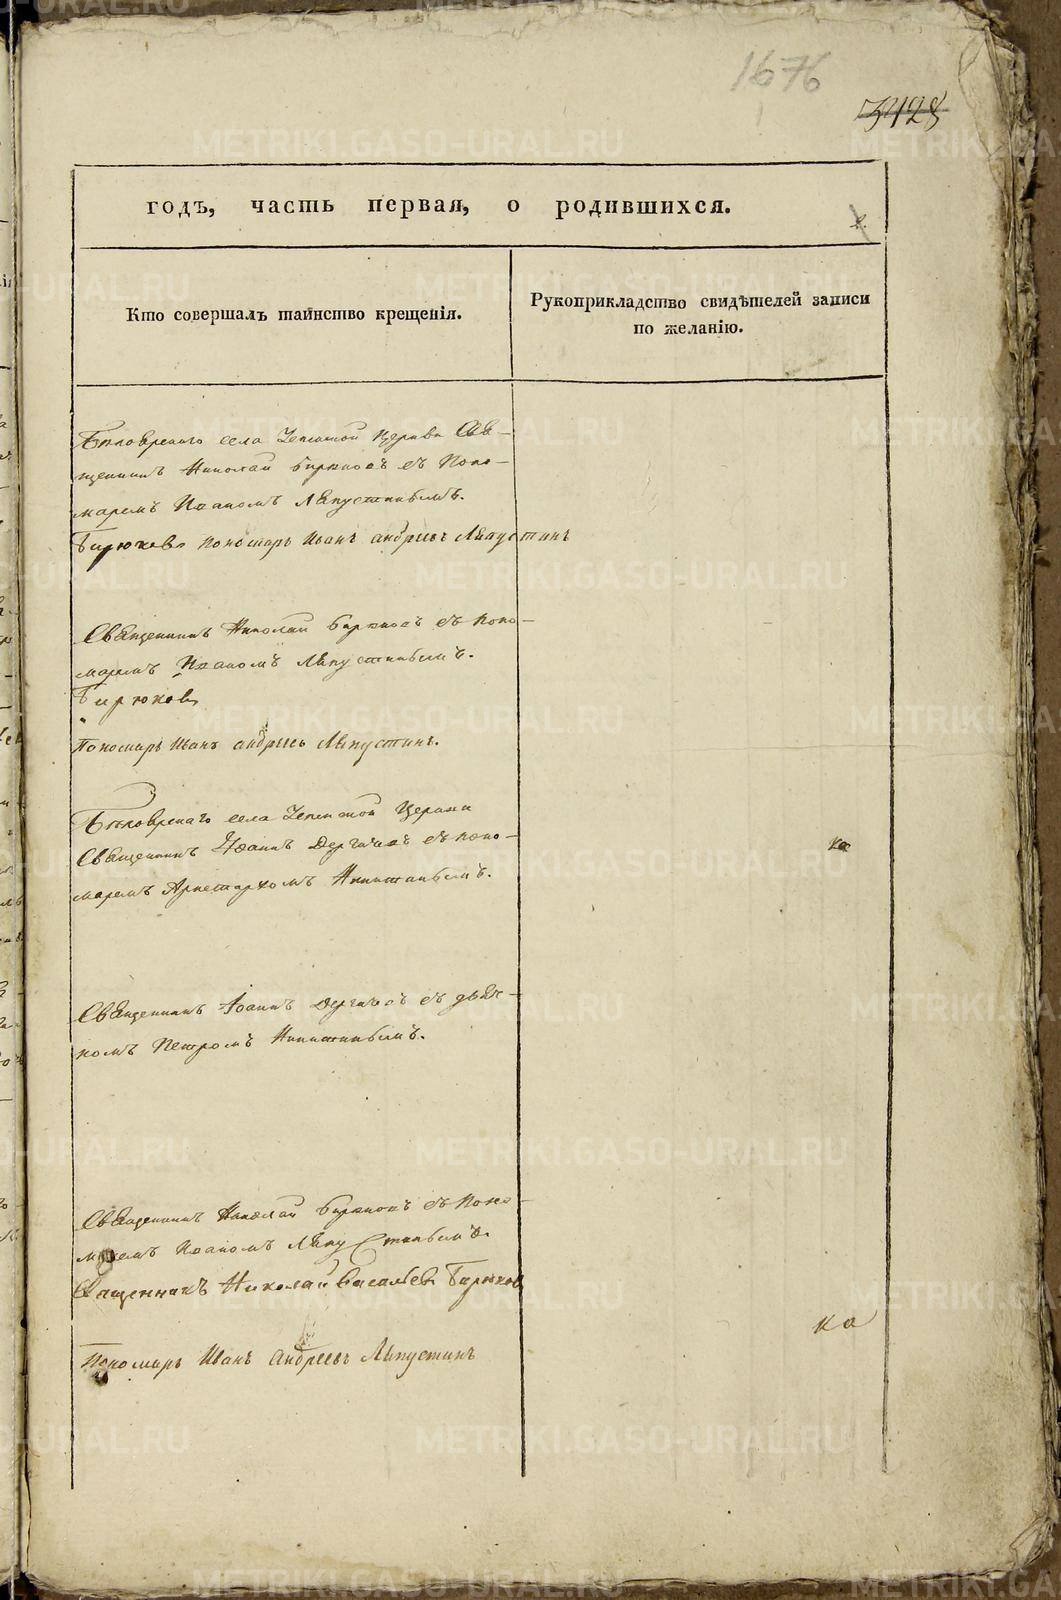 1676
3428
годъ, часть первая, о родившихся.
Кто совершалъ таинство крещенія.
Рукоприкладство свидѣтелей записи
по желанію.
села Церкви Свя-
щенникъ Николай Бирюковъ съ Поно-
маремъ Иоаномъ Ляпустинымъ.
Бирюковъ Пономарь Иванъ Андреевъ Ляпустинъ
Священникъ Николай Бирюковъ съ Поно-
маремъ Иоаномъ Ляпустинымъ.
Бирюковъ
Пономарь Иванъ Андреевъ Ляпустинъ.
села Церкви
Священникъ Іоаннъ Дергачевъ съ Поно-
маремъ Аристархомъ Никитинымъ.
Священникъ Іоаннъ Дергачевъ съ Дья-
комъ Петромъ Никитинымъ.
Священникъ Николай Бирюковъ съ Поно-
маремъ Иоаномъ Ляпустинымъ.
Священникъ Николай Васильевъ Бирюковъ
ка
Пономарь Иванъ Андреевъ Ляпустинъ
METRIKI.GASO-URAL.RU